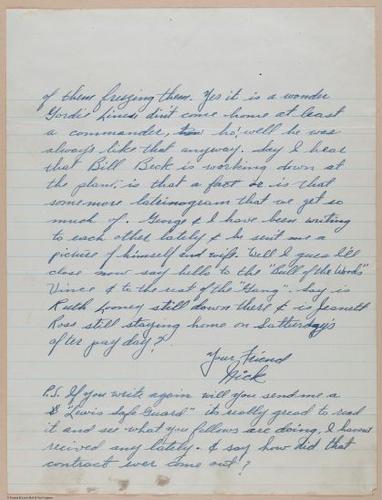 of them freezing them. Yes it is a wonder
Gordi din't come home at least
a commander, ho! well he was
always like that anyway. Say I hear
that Bill Beck is working down at
the plant, is that a fact or is that
somemore latrinogram that we get so
much of. George & I have been writing
to each other lately & he sent me a
picture of himself and wife. Well I guess I'll
close now say hello to the "Bull of the Woods"
Vince & to the rest of the "Gang". Say is
Ruth still down there & is
Ross still staying home on Satturdays
after pay day?
Your Friend
Nick
P.S. If you write again will you send me a
"Lewis Safe Guard" its really great to read
it and see what you fellows are doing. I havent
recived any lately. & say how did that
contract ever come out?